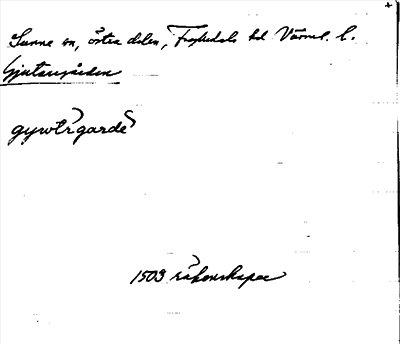 Sunne sn, östra delen, Fryksdals hd Värml. l.
Gjutaregården
gywtrgarde
1503 räkenskaper